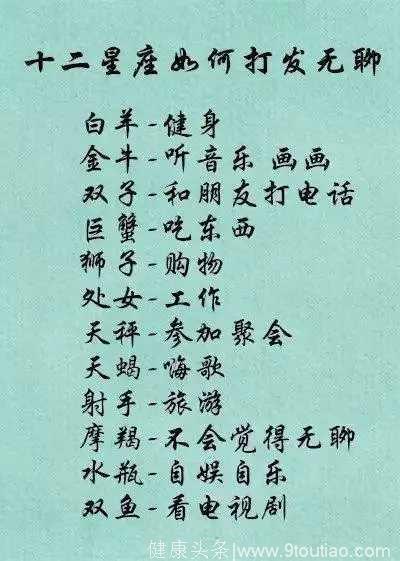 十二星座如何打发无聊
白羊-健身
金牛-听音乐 画画
双子-和朋友打电话
巨蟹-吃东西
狮子-购物
处女-工作
天秤-参加聚会
天蝎-嗨歌
射手-旅游
摩羯-不会觉得无聊
水瓶-自娱自乐
双鱼-看电视剧
健康头条/www.9toutiao.com